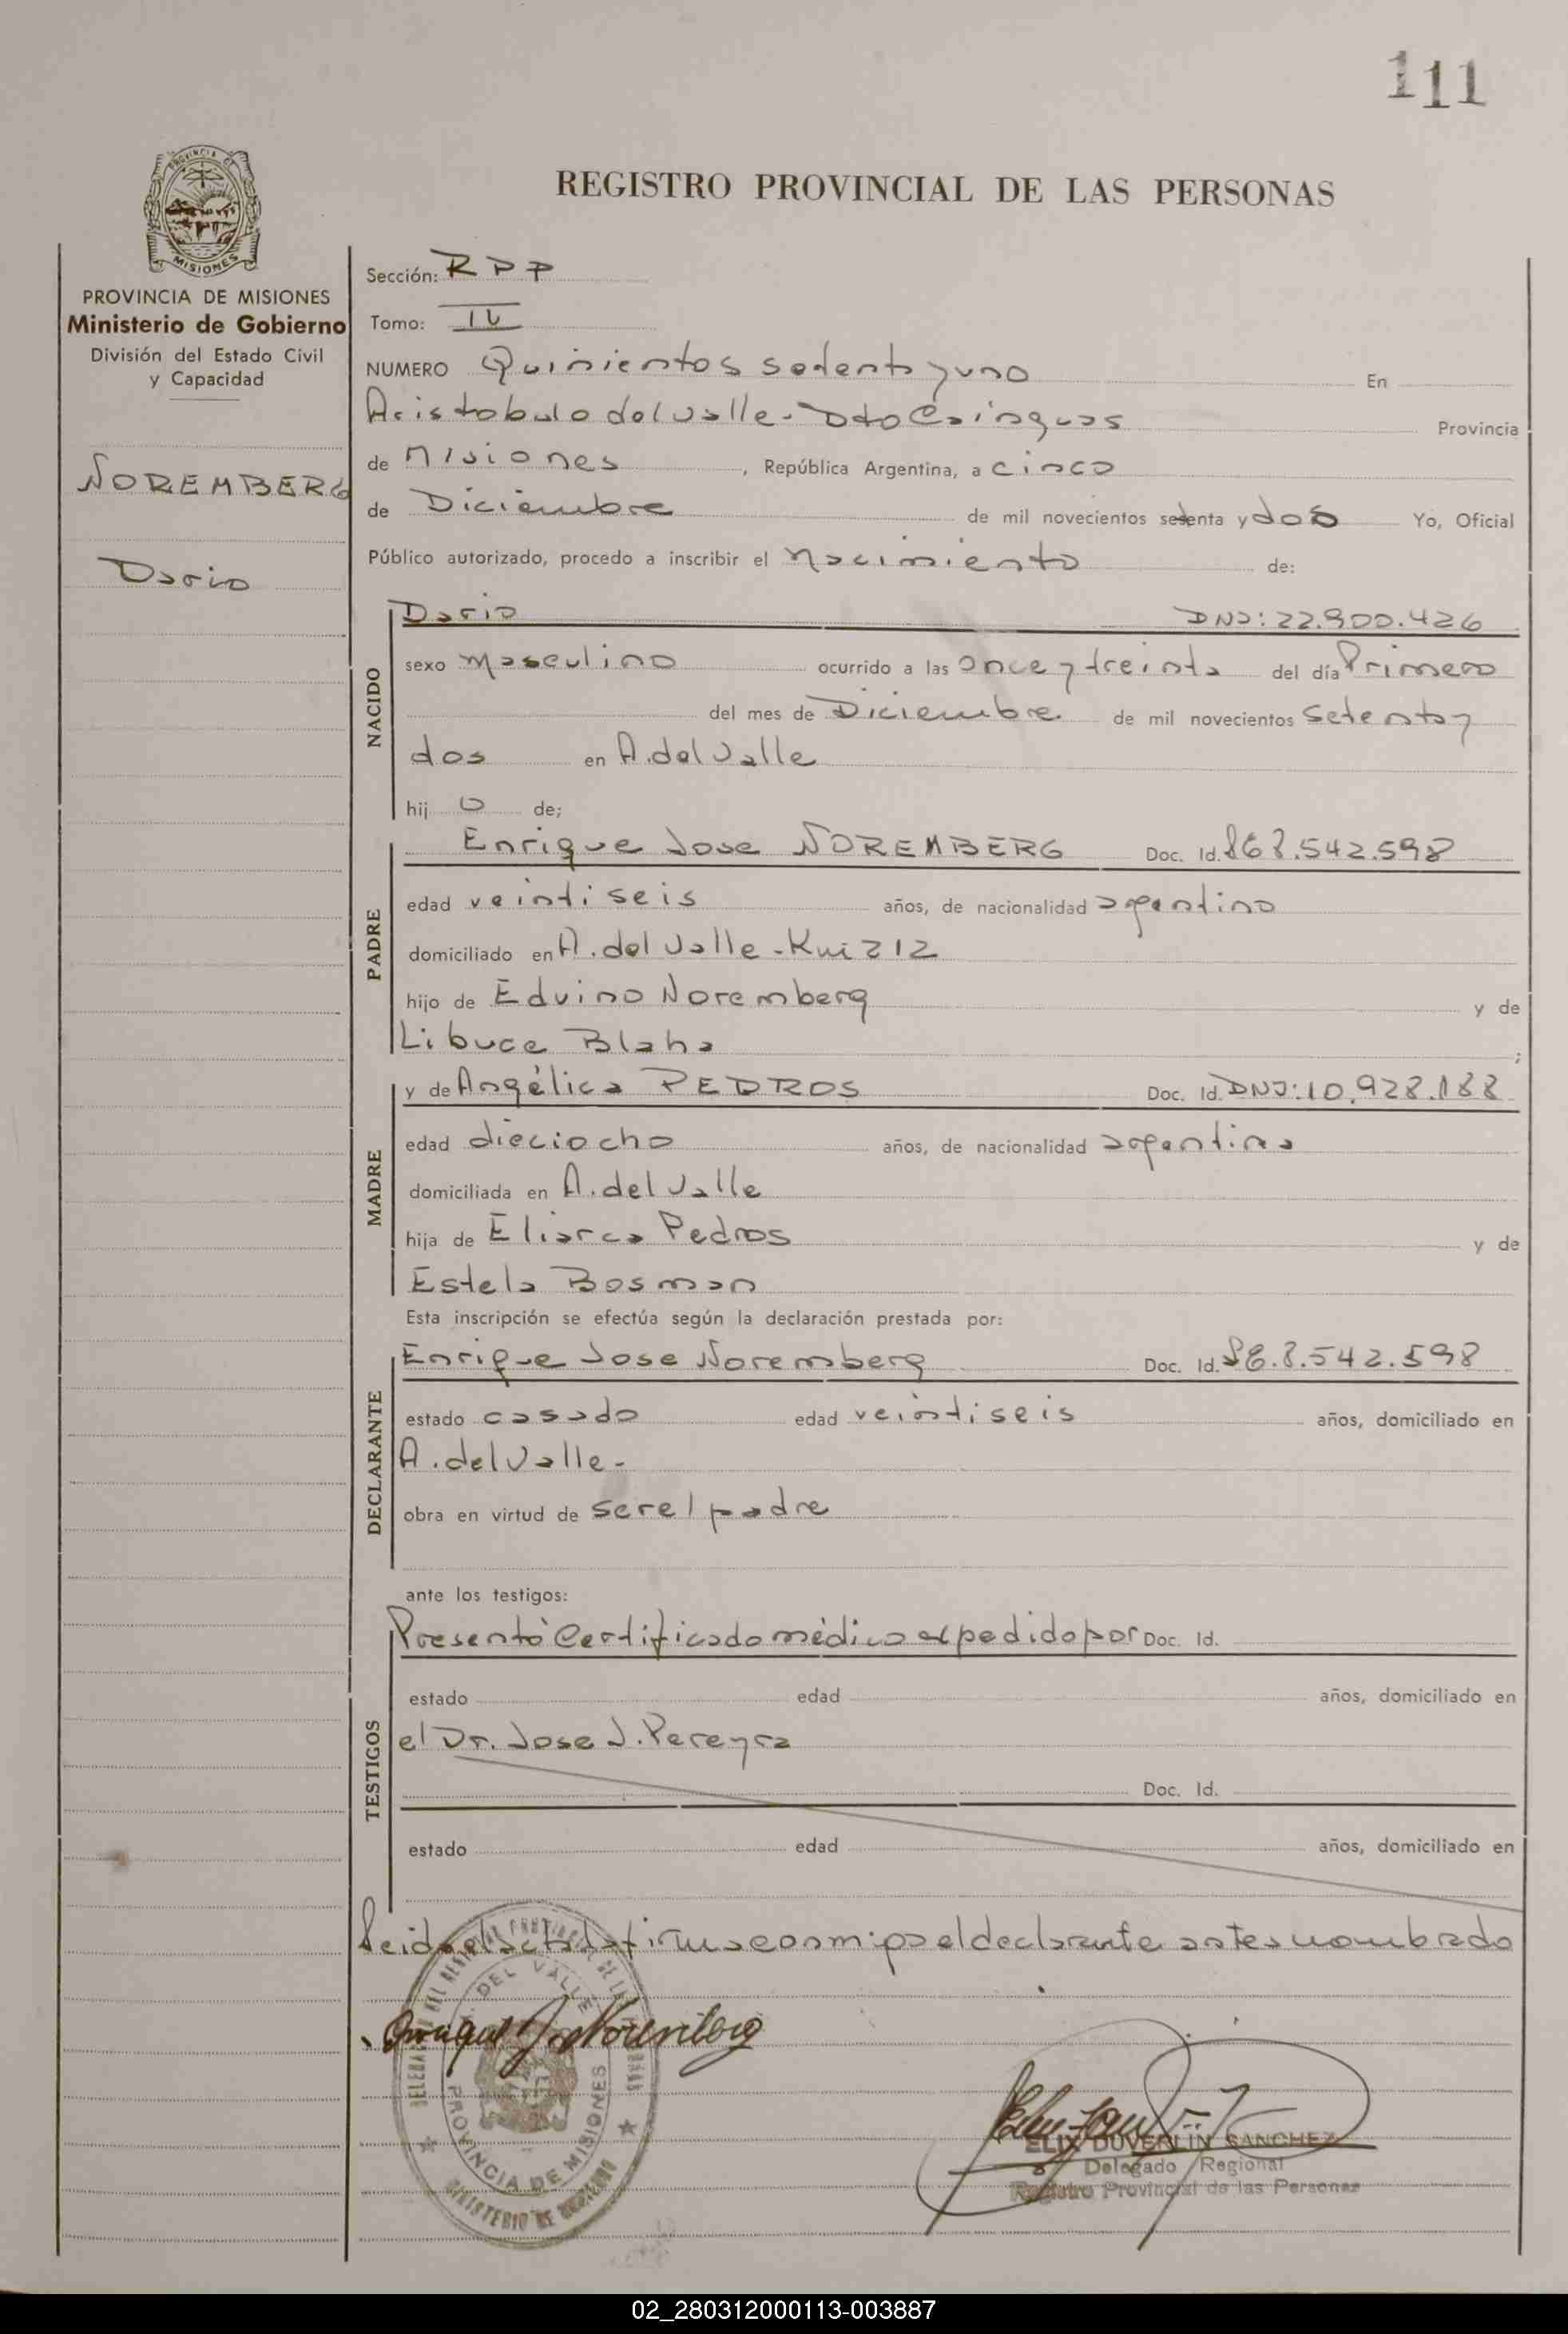 111
PROVINCIA DE
MISIONES
REGISTRO PROVINCIAL DE LAS PERSONAS
PROVINCIA DE MISIONES
Ministerio de Gobierno
División del Estado Civil
y Capacidad
NOREMBERG
Dario
Sección: RPP
Tomo: IV
NUMERO Quinientos setenta y uno En
Aristobulo del Valle - Dto Cainguas Provincia
de Misiones, República Argentina, a cinco
de Diciembre de mil novecientos setenta y dos Yo, Oficial
Público autorizado, procedo a inscribir el nacimiento de:
NACIDO
Dario DNI: 22.900.426
sexo masculino ocurrido a las once y treinta del día Primero
del mes de Diciembre de mil novecientos setenta y
dos en A. del Valle
hij o de;
PADRE
Enrique Jose NOREMBERG Doc. Id. 8.542.598
edad veintiseis años, de nacionalidad argentino
domiciliado en A. del Valle - Km 212
hijo de Eduino Noremberg y de
Libuce Blaha ;
MADRE
y de Angélica PEDROS Doc. Id. DNI: 10.928.188
edad dieciocho años, de nacionalidad argentina
domiciliada en A. del Valle
hija de Eliarca Pedros y de
Estela Bosman
Esta inscripción se efectúa según la declaración prestada por:
DECLARANTE
Enrique Jose Noremberg Doc. Id. 8.542.598
estado casado edad veintiseis años, domiciliado en
A. del Valle -
obra en virtud de ser el padre
ante los testigos:
TESTIGOS
Presentó Certificado médico expedido por Doc. Id.
estado edad años, domiciliado en
el Dr. Jose J. Pereyra
Doc. Id.
estado edad años, domiciliado en
Leida el acta la firma conmigo el declarante antes nombrado
Enrique J. Noremberg
DEL VALLE
PROVINCIA DE MISIONES
MINISTERIO DE GOBIERNO
ELIX DUVERLIN SANCHEZ
Delegado Regional
Registro Provincial de las Personas
02_280312000113-003887